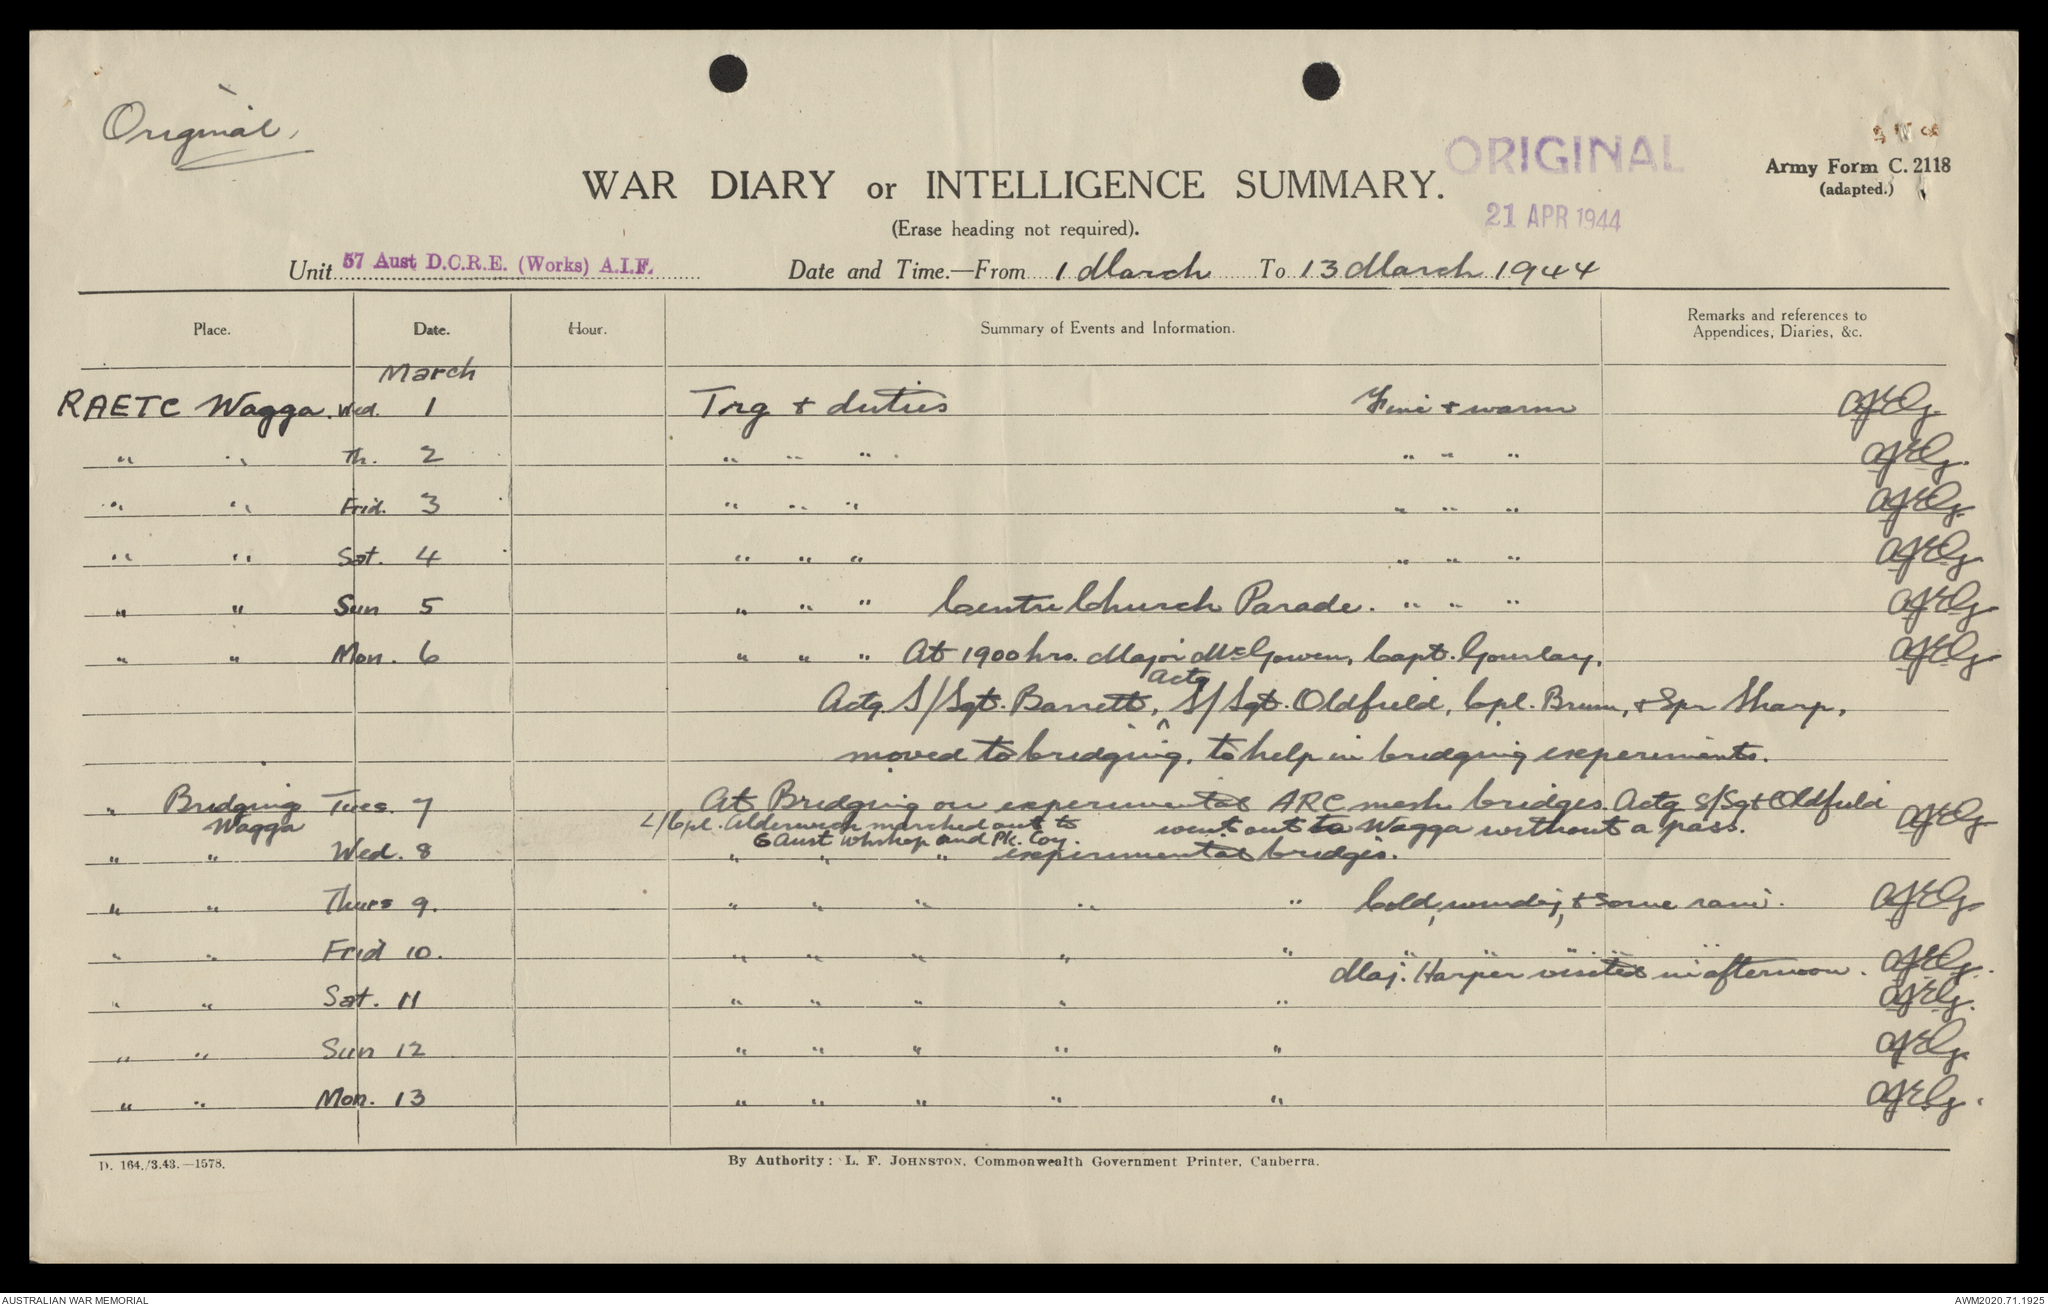 Original.
ORIGINAL
Army Form C. 2118
(adapted.)
WAR DIARY or INTELLIGENCE SUMMARY.
21 APR 1944
(Erase heading not required).
Unit 57 Aust D.C.R.E. (Works) A.I.F.
Date and Time.—From 1 March To 13 March 1944
Place. Date. Hour. Summary of Events and Information. Remarks and references to Appendices, Diaries, &c.
March
RAETC Wagga. Wed. 1 Trg + duties Fine + warm
" " Th. 2 " " " " " "
" " Frid. 3 " " " " " "
" " Sat. 4 " " " " " "
" " Sun 5 " " " Centre Church Parade. " " "
" " Mon. 6 " " " At 1900 hrs. Major McGowen, Capt. Gourlay,
Actg S/Sgt. Barrett, Actg S/Sgt. Oldfield, Cpl. Brum, + Spr Sharp,
moved to bridging, to help in bridging experiments.
" Bridging Wagga Tues. 7 At Bridging on experimental ARC mesh bridges. Actg S/Sgt Oldfield
went out to Wagga without a pass.
L/Cpl. Alderwich marched out to
6 Aust Wkshop and Pk. Coy.
" " Wed. 8 " " " experimental bridges.
" " Thurs 9. " " " " " Cold, windy, + some rain.
" " Frid 10. " " " " " " " " "
Maj. Harper visited in afternoon.
" " Sat. 11 " " " " "
" " Sun 12 " " " " "
" " Mon. 13 " " " " "
D. 164./3.43.—1578.
By Authority: L. F. JOHNSTON, Commonwealth Government Printer, Canberra.
AUSTRALIAN WAR MEMORIAL
AWM2020.71.1925